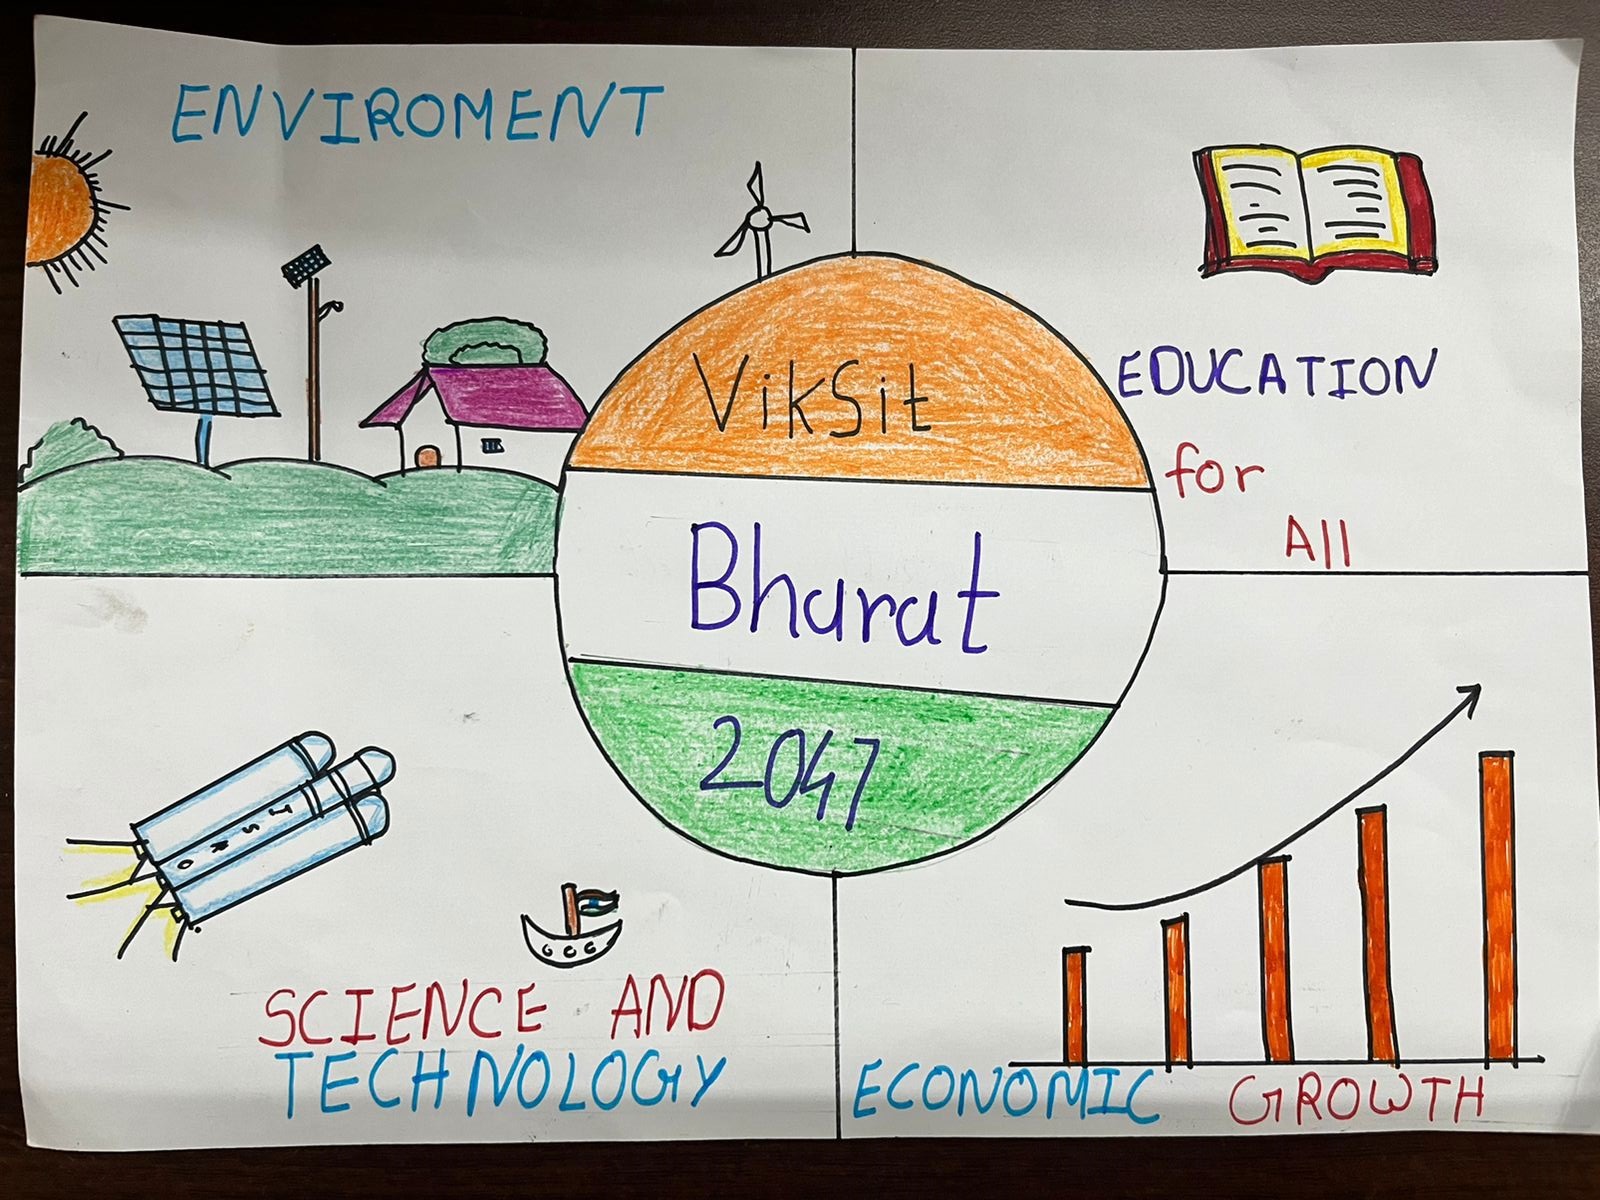 ENVIROMENT
EDUCATION
for
All
VikSit
Bharat
2047
ISRO
SCIENCE AND
TECHNOLOGY
ECONOMIC GROWTH